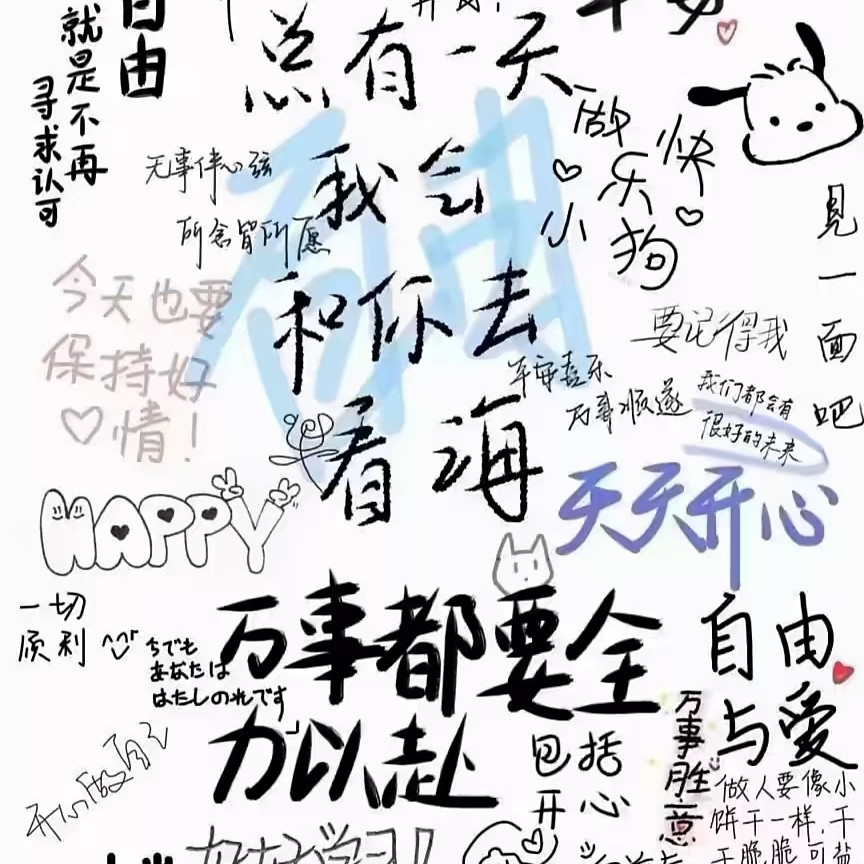 自由
就是不再
寻求认可
总有一天
我会
和你去
看海
自由
无事绊心弦
所念皆所愿
做快
乐
小狗
见一面吧
今天也要
保持好
情！
要记得我
平安喜乐
万事顺遂
我们都会有
很好的未来
天天开心
HAPPY
一切
顺利
万事都要全
力以赴
ちでも
あなたは
はたしのれです
自由
与爱
万事胜意
包括
开心
开心做自己
好好学习!!
做人要像小
饼干一样,干
干脆脆,可盐